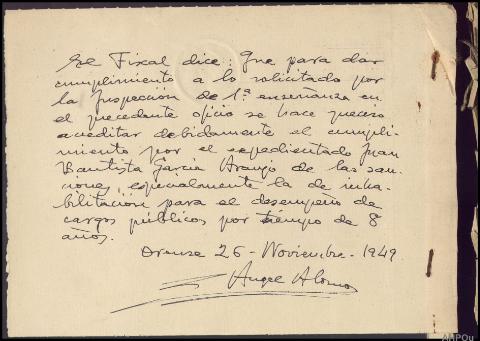 El Fiscal dice: Que para dar
cumplimiento a lo solicitado por
la Inspección de 1ª enseñanza en
el precedente oficio se hace preciso
acreditar debidamente el cumpli-
miento por el expedientado Juan
Bautista García Araujo de las san-
ciones, especialmente la de inha-
bilitación para el desempeño de
cargos públicos por tiempo de 8
años.
Orense 26 - Noviembre - 1949.
Angel Alonso
AHPOu